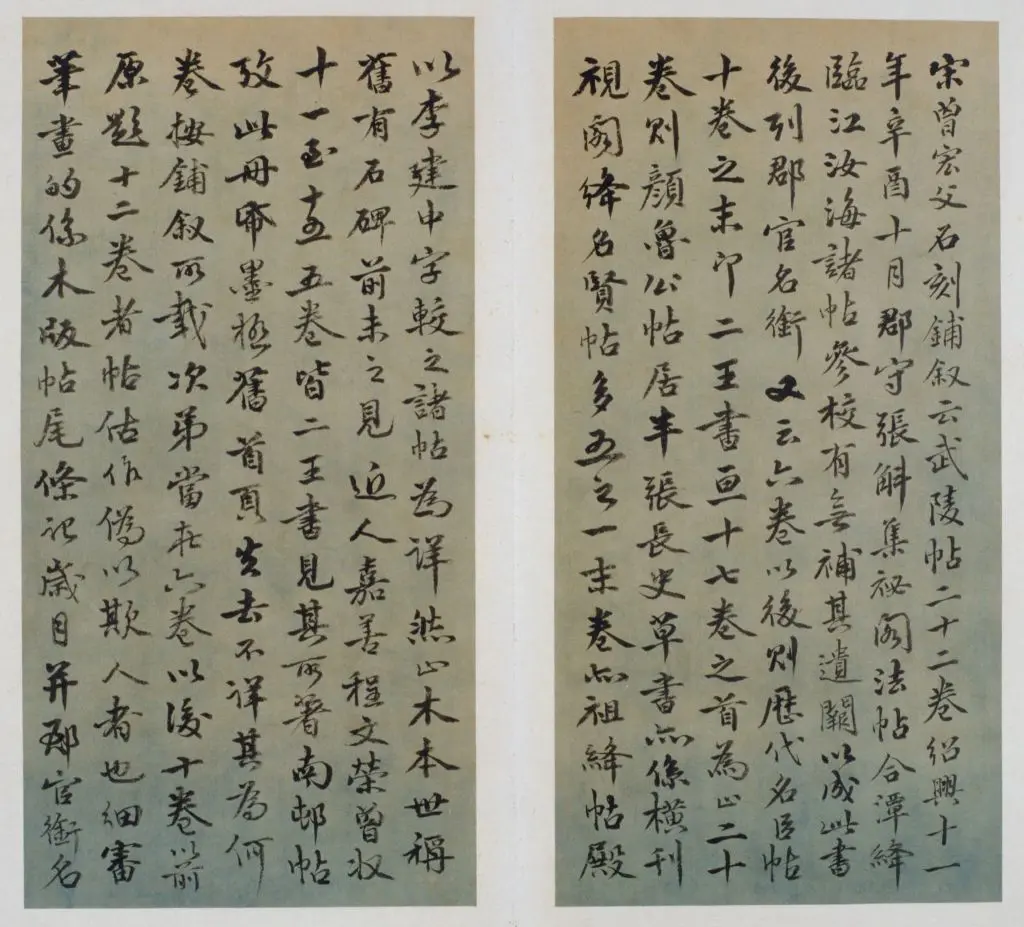 宋曾宏父石刻鋪叙云武陵帖二十二卷紹興十一
年辛酉十月郡守張斛集祕閣法帖合潭絳
臨江汝海諸帖參校有無補其遺闕以成此書
後列郡官名銜又云六卷以後則歷代名臣帖
十卷之末二王書亘十七卷之首為止二十
卷則顏魯公帖居半張長史草書亦係橫刊
視閣絳名賢帖多五之一末卷亦祖絳帖殿
以李建中字較之諸帖為詳然止木本世稱
舊有石碑前未之見近人嘉善程文榮曾收
十一至十五五卷皆二王書見其所著南邨帖
攷此冊帋墨極舊首頁失去不詳其為何
卷按鋪叙所載次第當在六卷以後十卷以前
原題十二卷者帖估作僞以欺人者也細審
筆畫的係木版帖尾條記歲月并郡官銜名